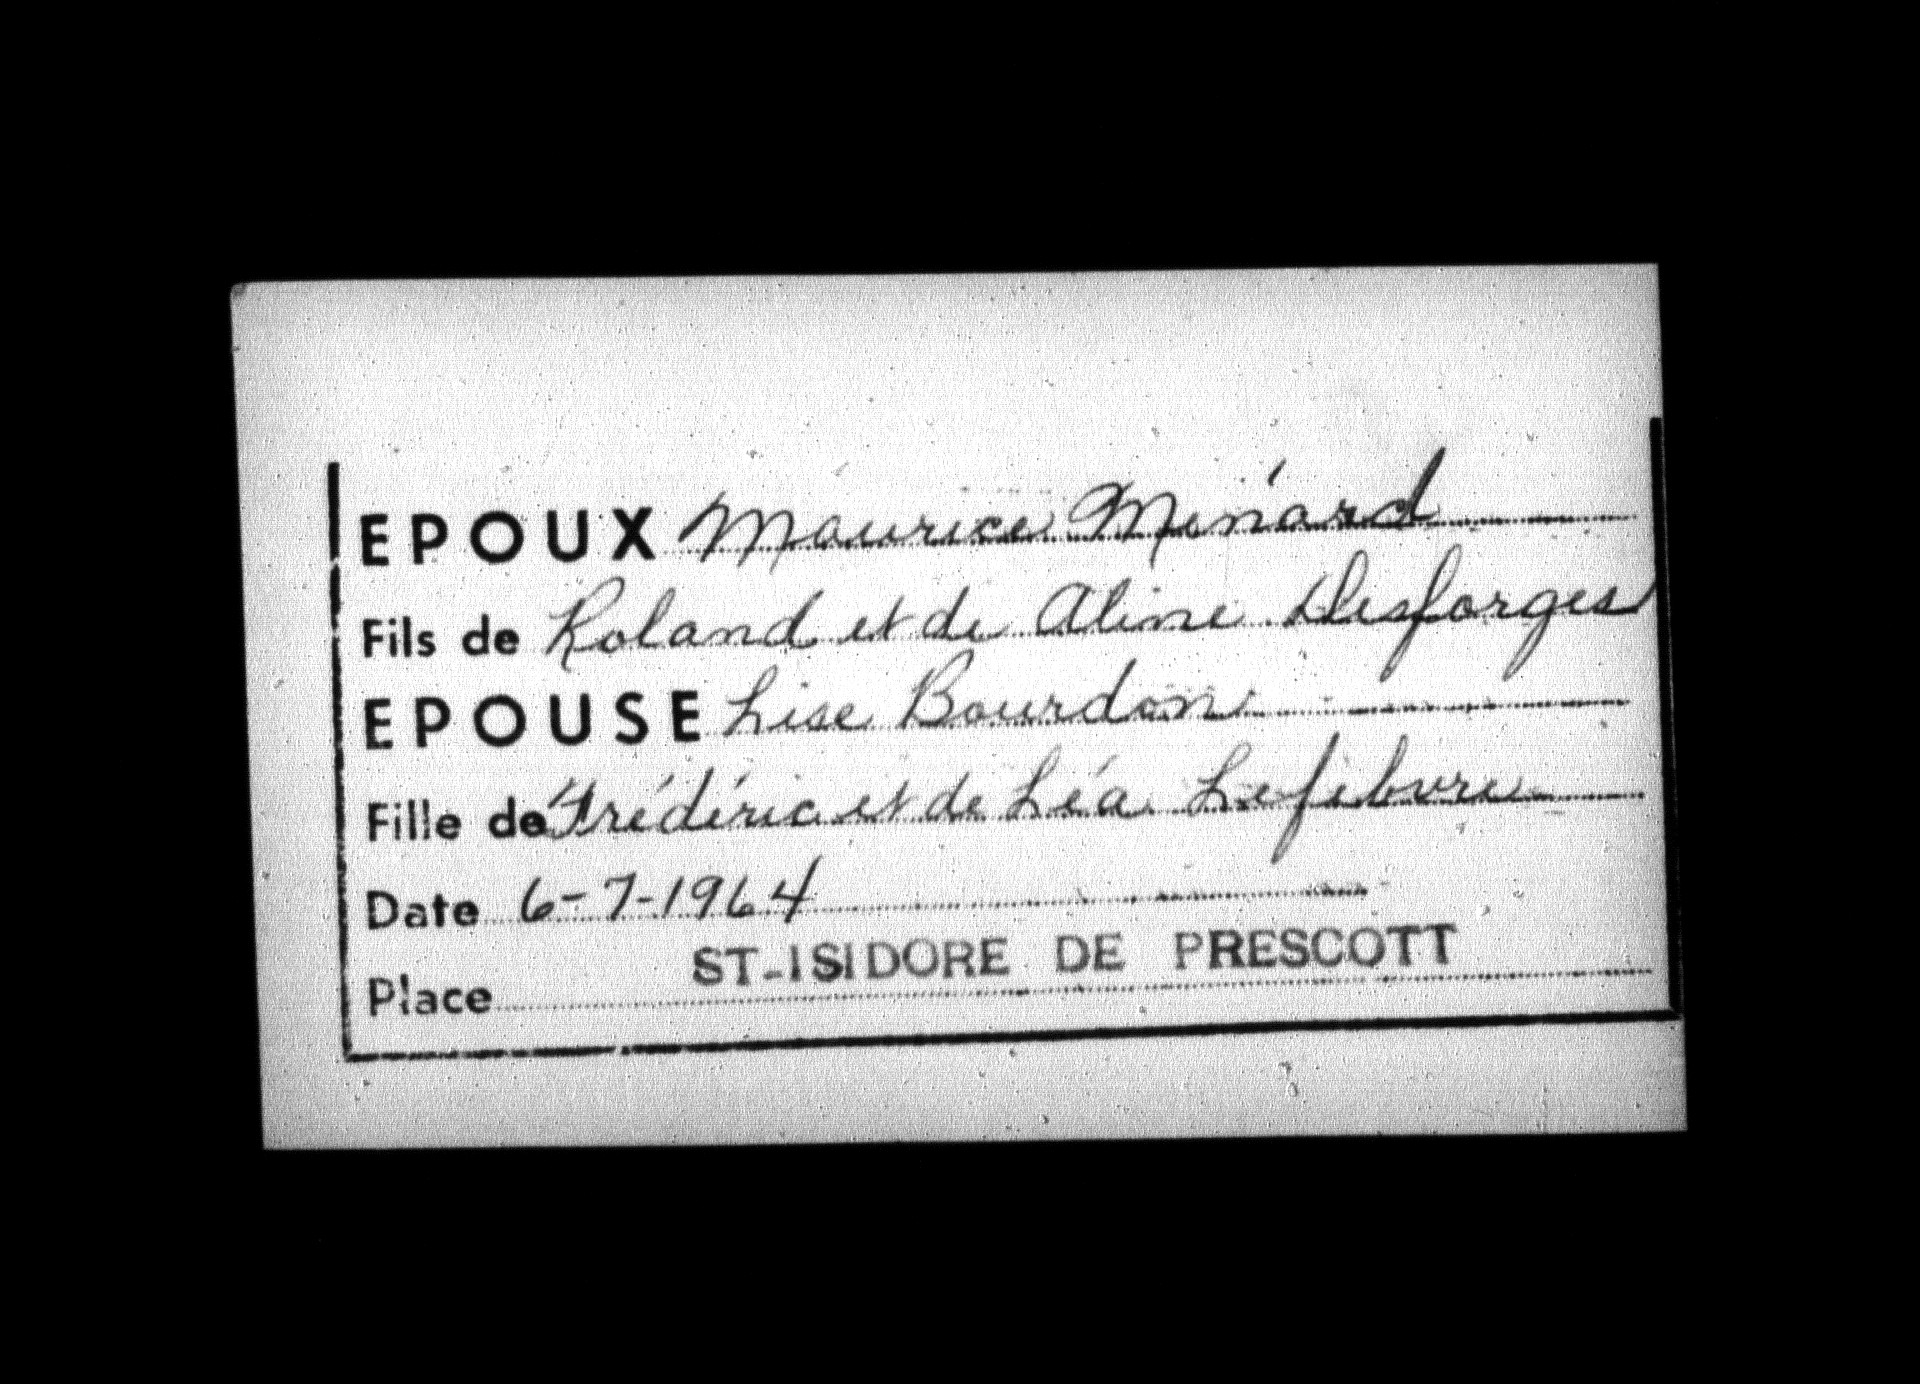 EPOUX Maurice Menárd
Fils de Roland et de Aline Desforges
EPOUSE Lise Bourdon
Fille de Frédéric et de Léa Lefebvre
Date 6-7-1964
Place ST-ISIDORE DE PRESCOTT